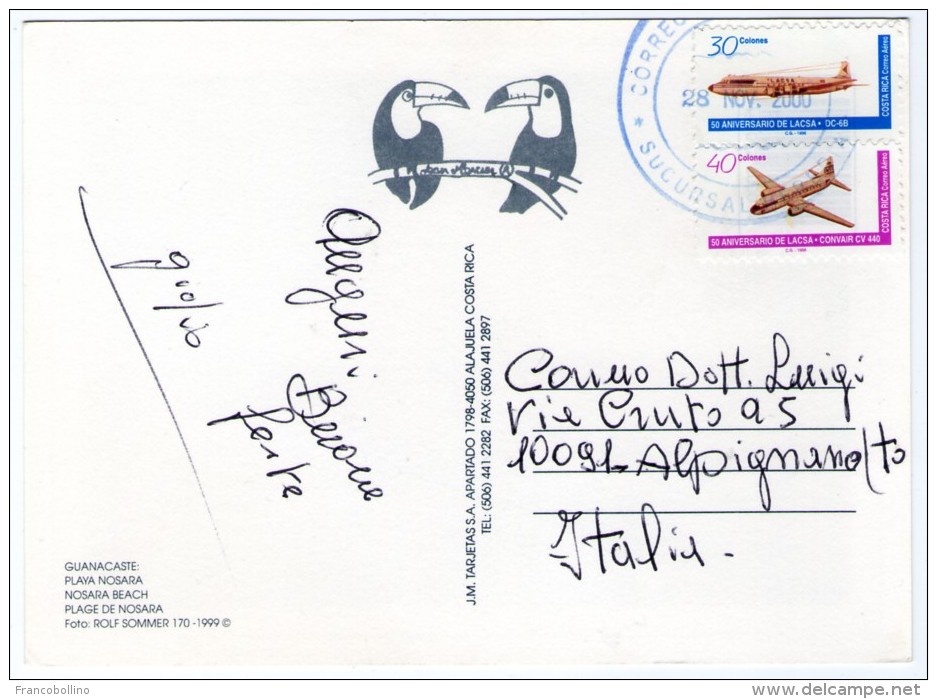 CORREO
SUCURSAL
28 NOV. 2000
30 Colones
LACSA
50 ANIVERSARIO DE LACSA • DC-6B
COSTA RICA Correo Aéreo
40 Colones
50 ANIVERSARIO DE LACSA • CONVAIR CV 440
COSTA RICA Correo Aéreo
Auguri
Buone
feste
J.M. TARJETAS S.A. APARTADO 1798-4050 ALAJUELA COSTA RICA
TEL: (506) 441 2282 FAX: (506) 441 2897
Dott. Luigi
Via Cruto 25
10091 Alpignano/to
Italia-
GUANACASTE:
PLAYA NOSARA
NOSARA BEACH
PLAGE DE NOSARA
Foto: ROLF SOMMER 170 -1999 ©
Francobollino
delcampe.net